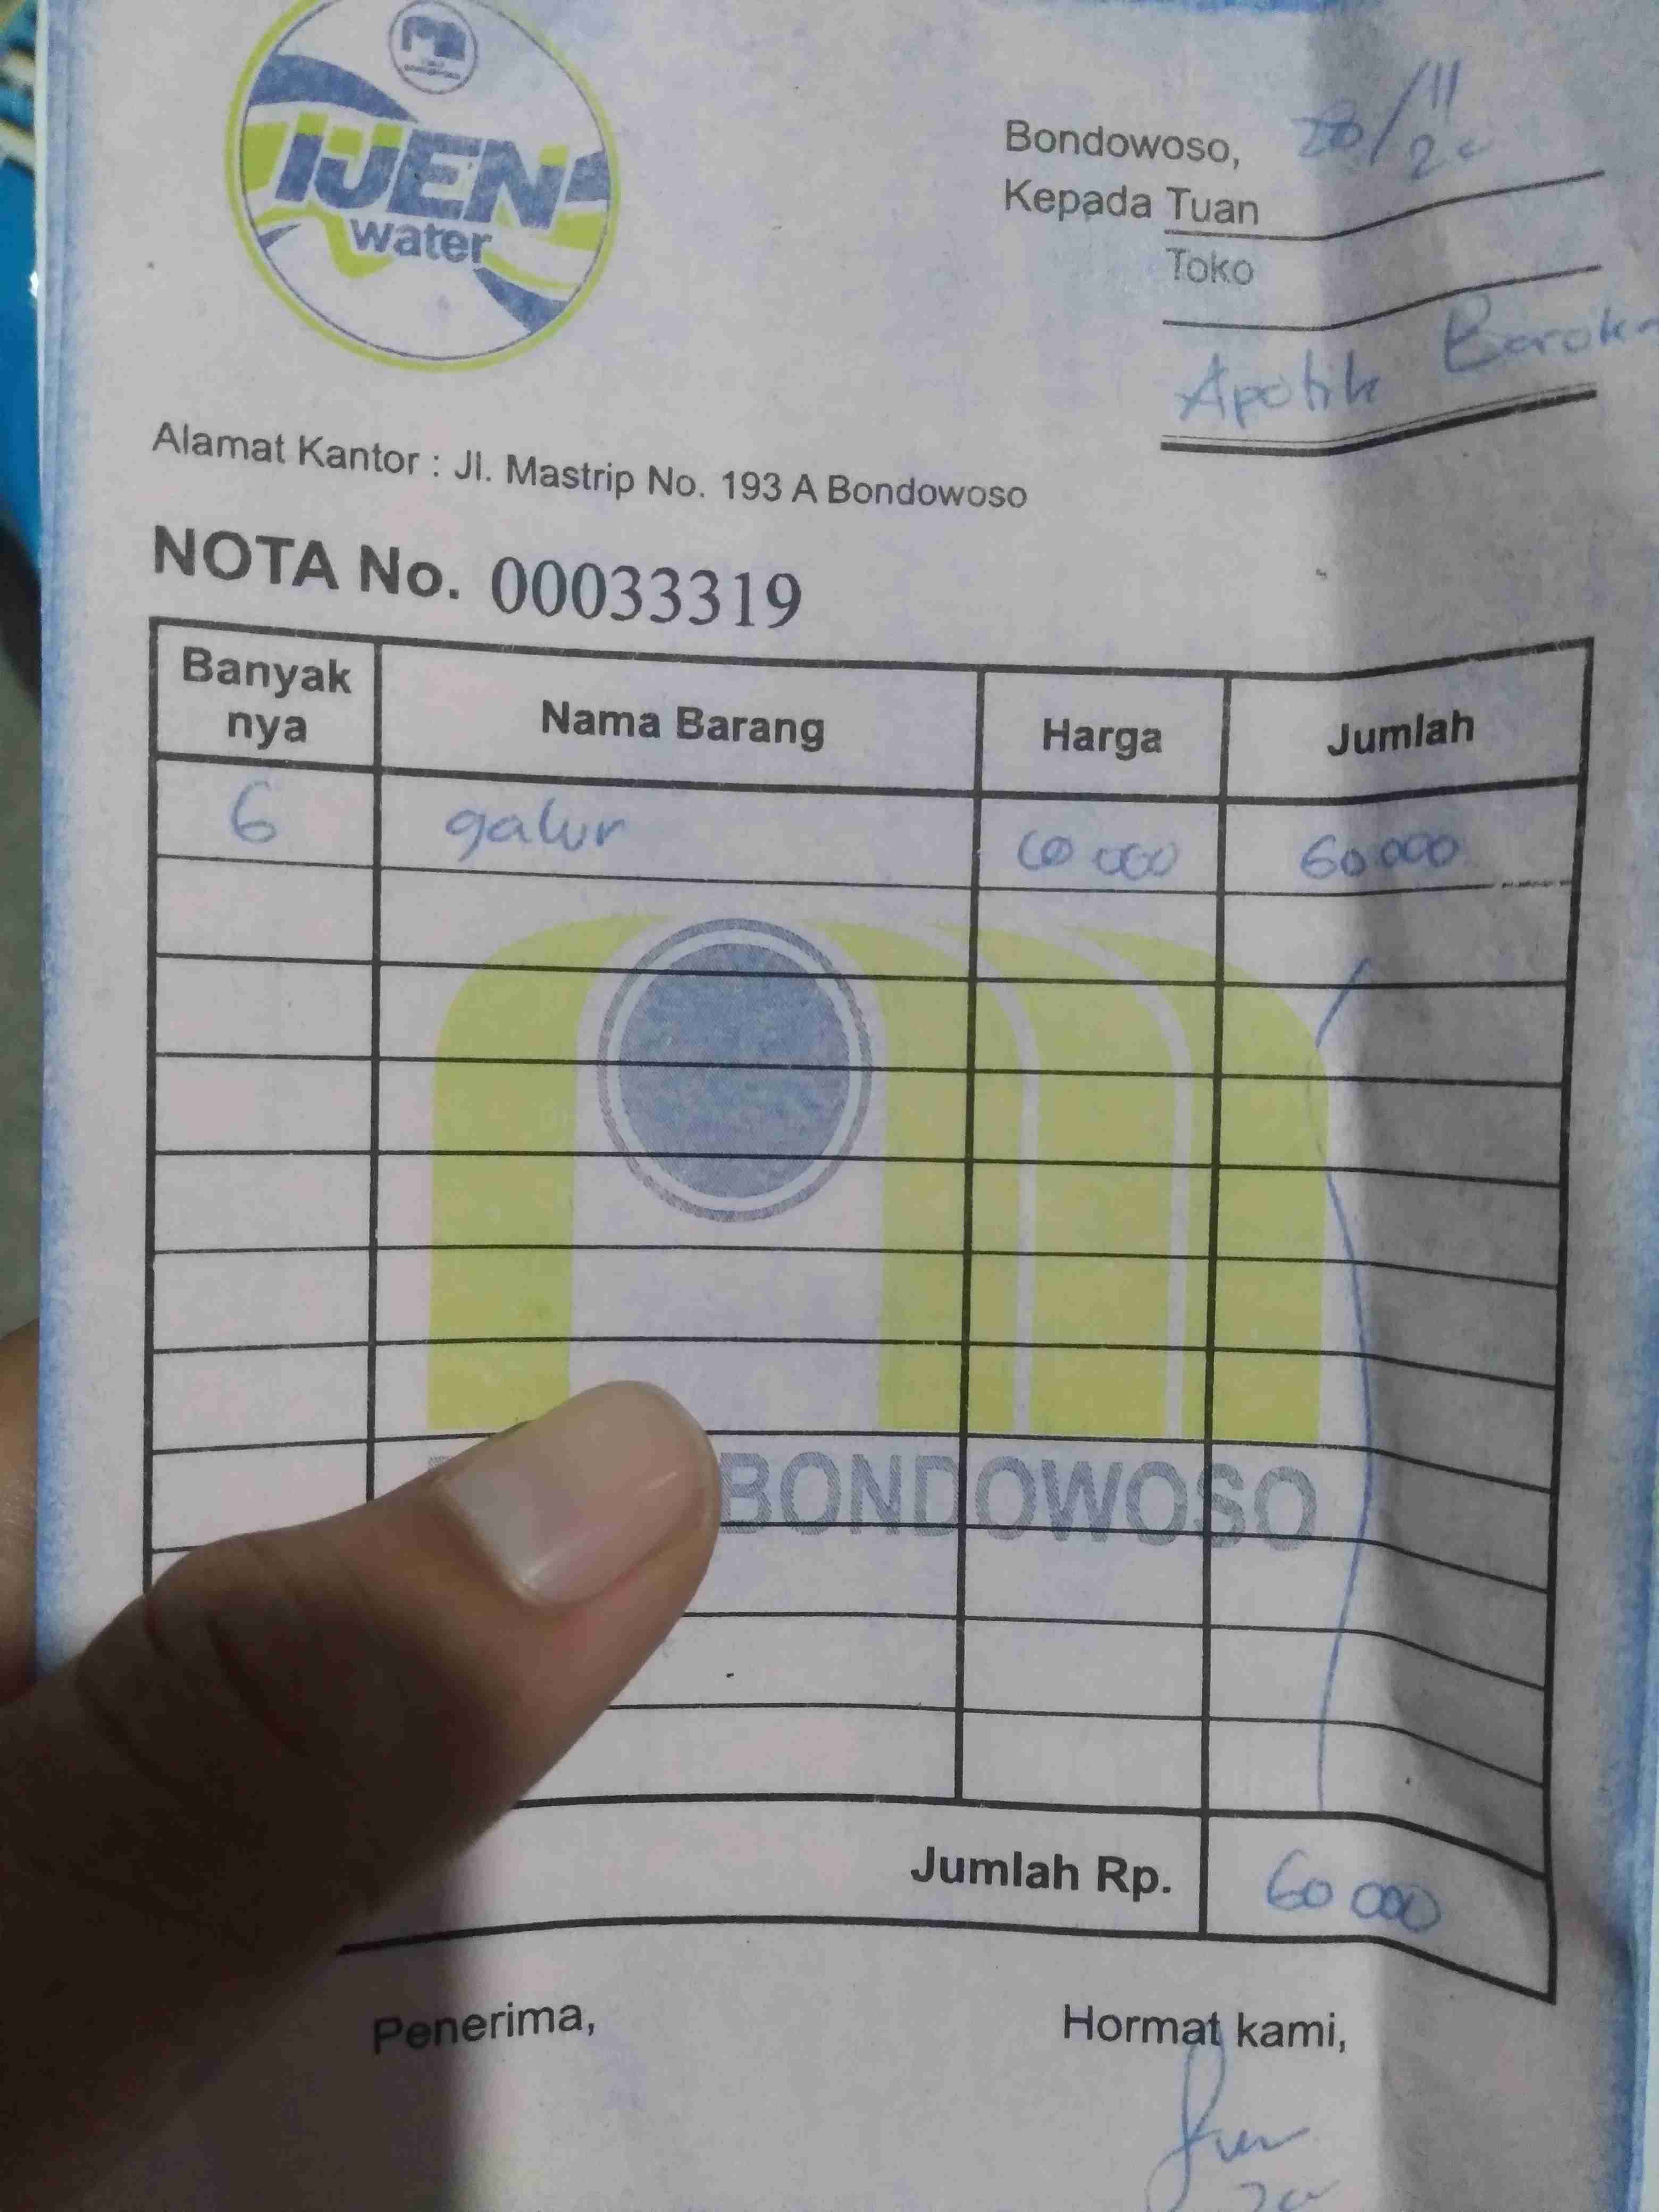 IJEN
water
Bondowoso, 28/11
Kepada Tuan
Toko
Apotik Barok
Alamat Kantor : Jl. Mastrip No. 193 A Bondowoso
NOTA No. 00033319
Banyak nya Nama Barang Harga Jumlah
6 galur 10 000 60.000
BONDOWOSO
Jumlah Rp. 60 000
Penerima, Hormat kami,